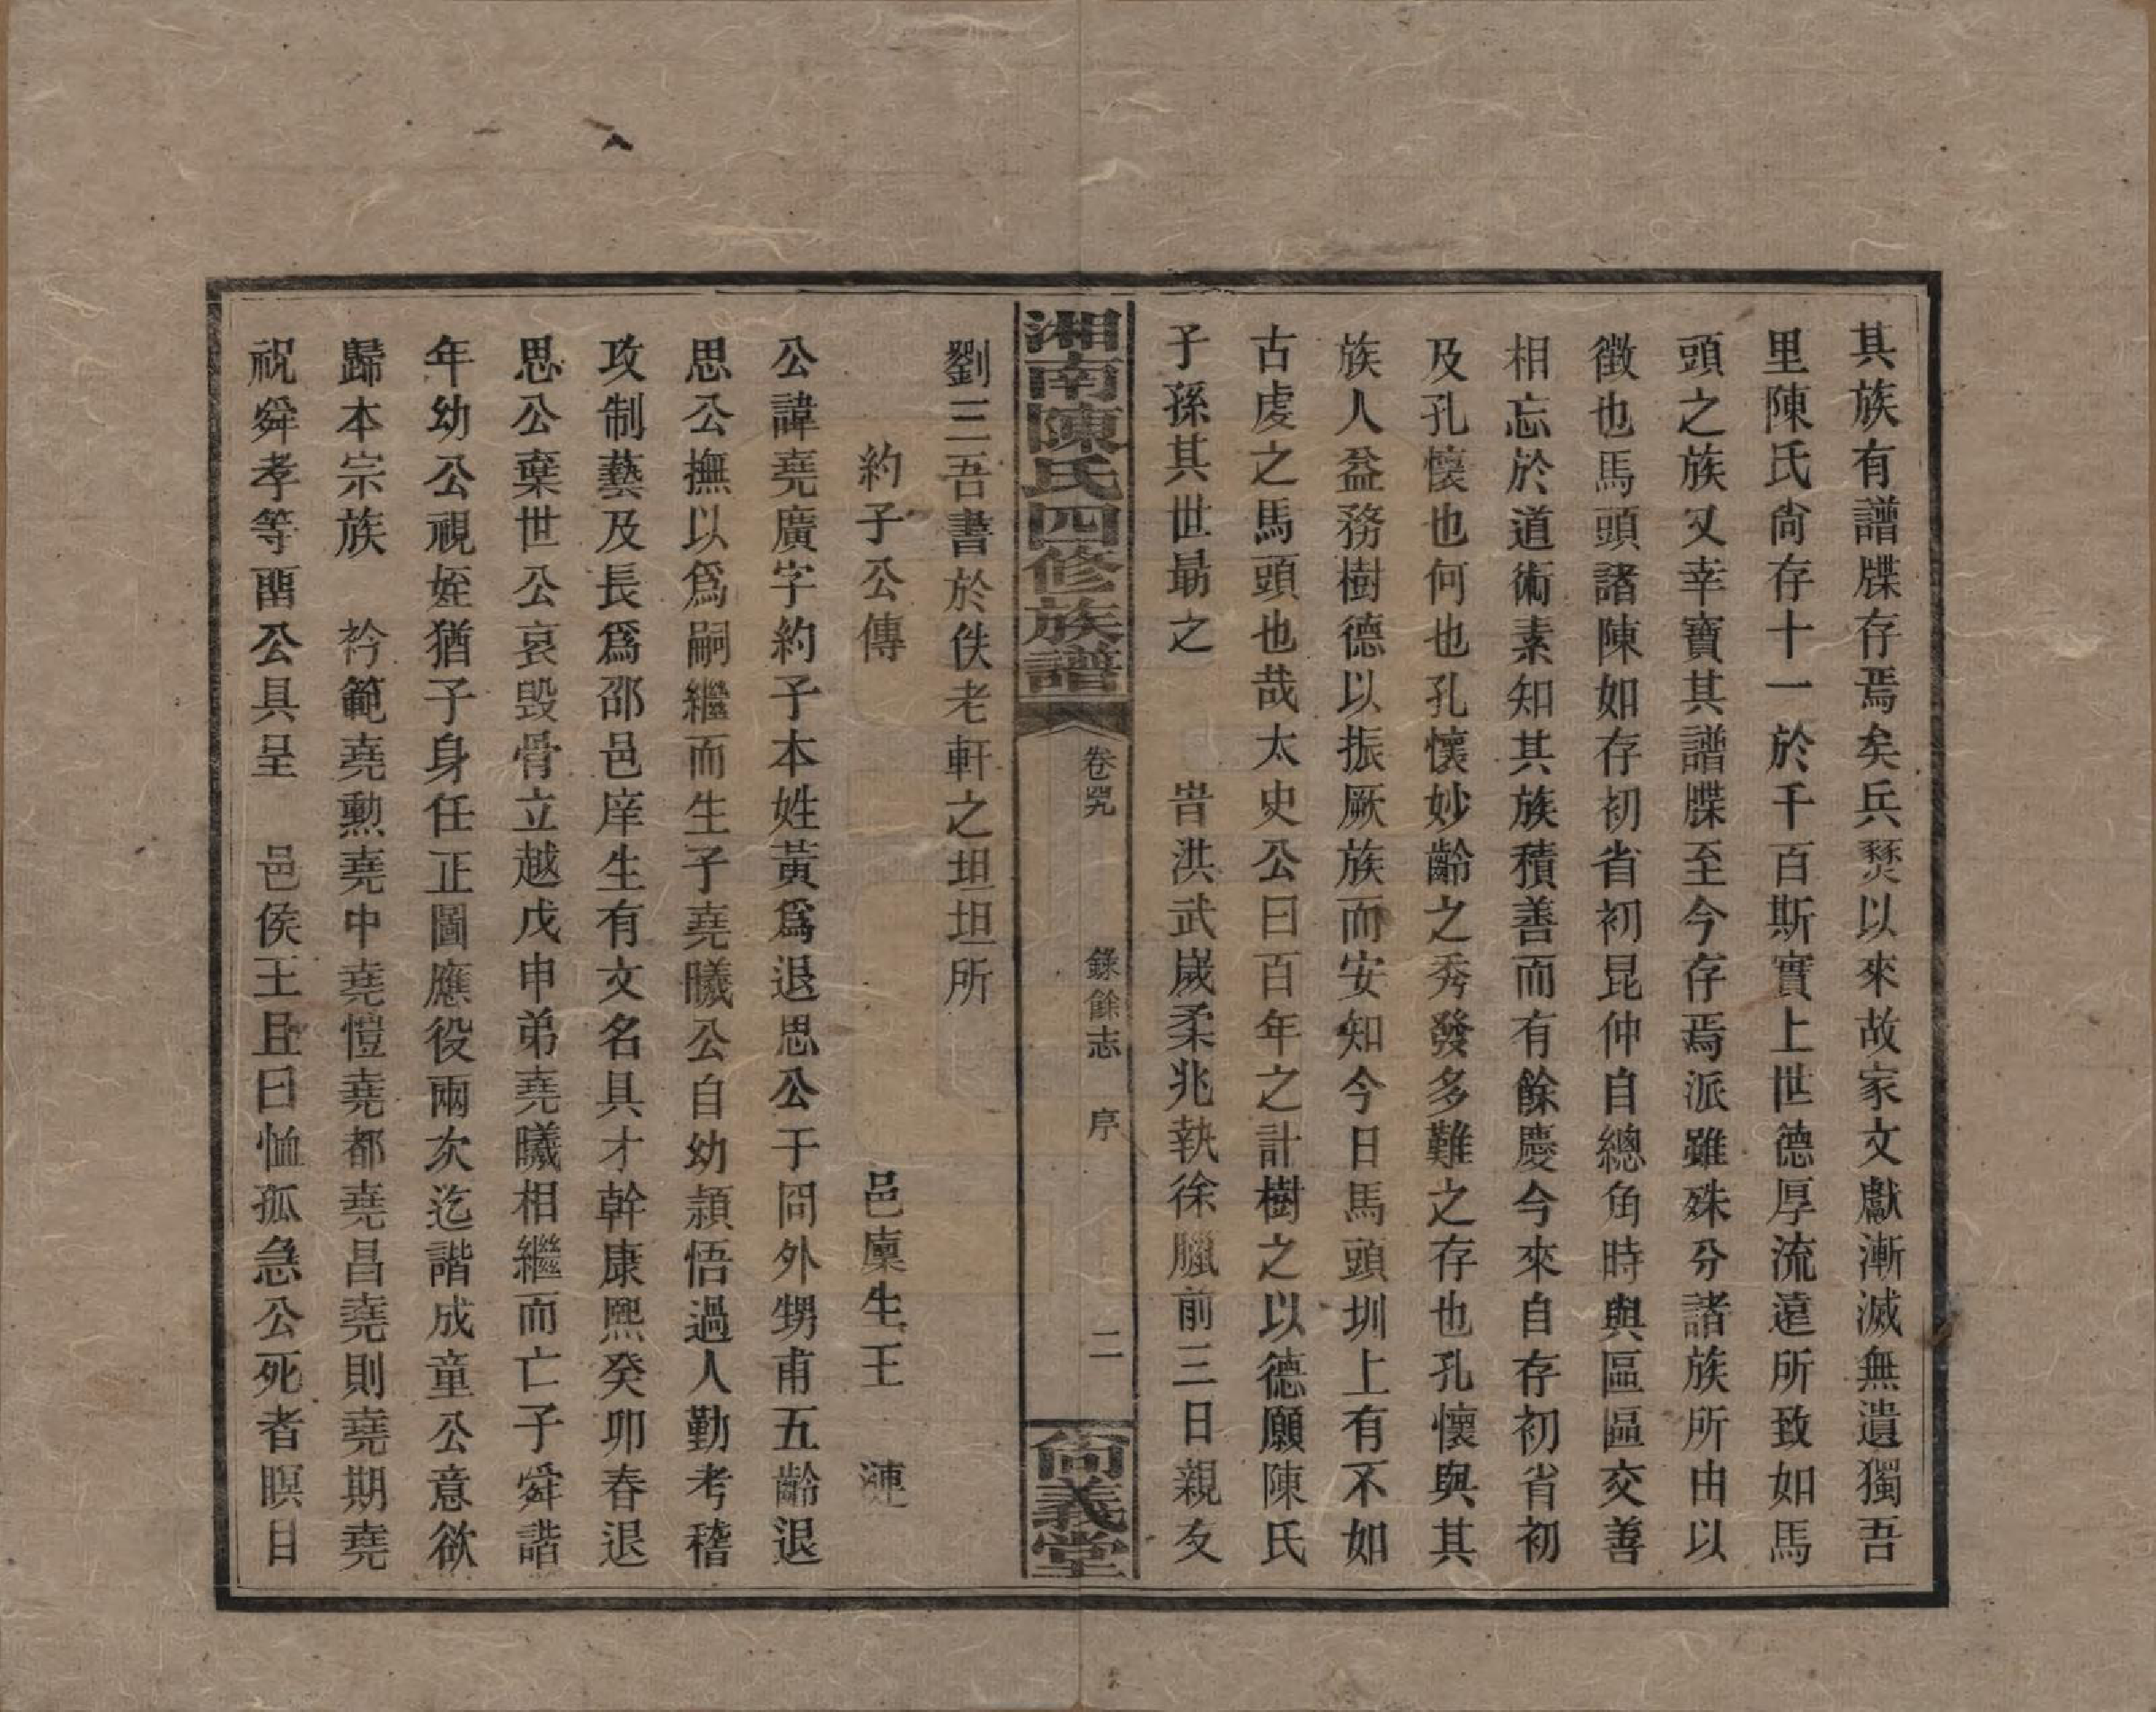 其族有譜牒存焉矣兵燹以來故家文獻漸滅無遺獨吾
里陳氏尙存十一於千百斯實上世德厚流遠所致如馬
頭之族又幸寶其譜牒至今存焉派雖殊分諸族所由以
徵也馬頭諸陳如存初省初昆仲自總角時與區區交善
相忘於道術素知其族積善而有餘慶今來自存初省初
及孔懷也何也孔懷妙齡之秀發多難之存也孔懷與其
族人益務樹德以振厥族而安知今日馬頭圳上有不如
古虔之馬頭也哉太史公曰百年之計樹之以德願陳氏
子孫其世勗之　　旹洪武嵗柔兆執徐臘前三日親友
湘南陳氏四修族譜　卷
錄餘志　序　二　尙義堂
劉三吾書於佚老軒之坦坦所
約子公傳　　邑廩生王　漣
公諱堯廣字約子本姓黃爲退思公于岡外甥甫五齡退
思公撫以爲嗣繼而生子堯曦公自幼頴悟過人勤考稽
攻制藝及長爲邵邑庠生有文名具才幹康熙癸卯春退
思公棄世公哀毀骨立越戊申弟堯曦相繼而亡子舜諧
年幼公視姪猶子身任正圖應役兩次迄諧成童公意欲
歸本宗族　衿範堯勲堯中堯愷堯都堯昌堯則堯期堯
祝舜孝等酉公具呈　邑侯王且曰恤孤急公死者瞑目